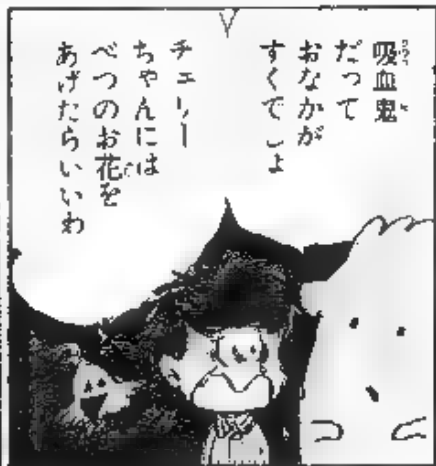 吸血鬼
だって
おなかが
すくでしょ
チェリー
ちゃんには
べつのお花を
あげたらいいわ